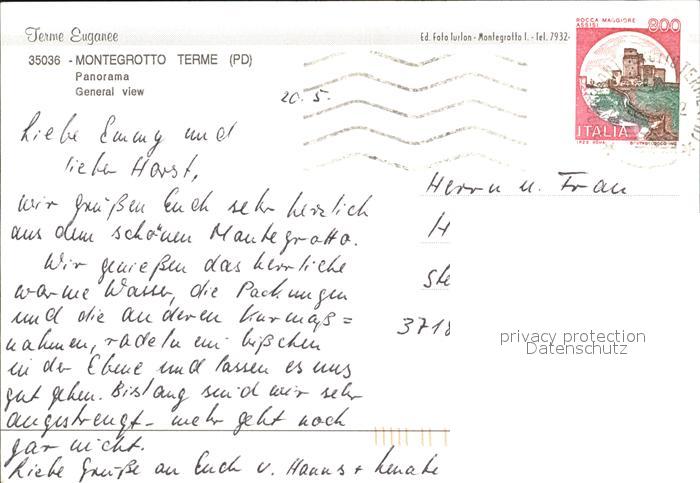 Terme Euganee
Ed. Foto Turlon - Montegrotto T. - Tel. 7932-
35036 - MONTEGROTTO TERME (PD)
Panorama
General view
ROCCA MAGGIORE
ASSISI
800
ITALIA
20.5.
Liebe Emmy und
lieber Horst,
wir grüßen Euch sehr herzlich
aus dem schönen Montegrotto.
Wir genießen das herrliche
warme Wasser, die Packungen
und die anderen Kurmaß=
nahmen, radeln ein bißchen
in der Ebene und lassen es uns
gut gehen. Bislang sind wir sehr
angestrengt - mehr geht noch
gar nicht.
Liebe Grüße an Euch v. Hanns + Renate
Herrn u. Frau
H
Ste
3718
privacy protection
Datenschutz